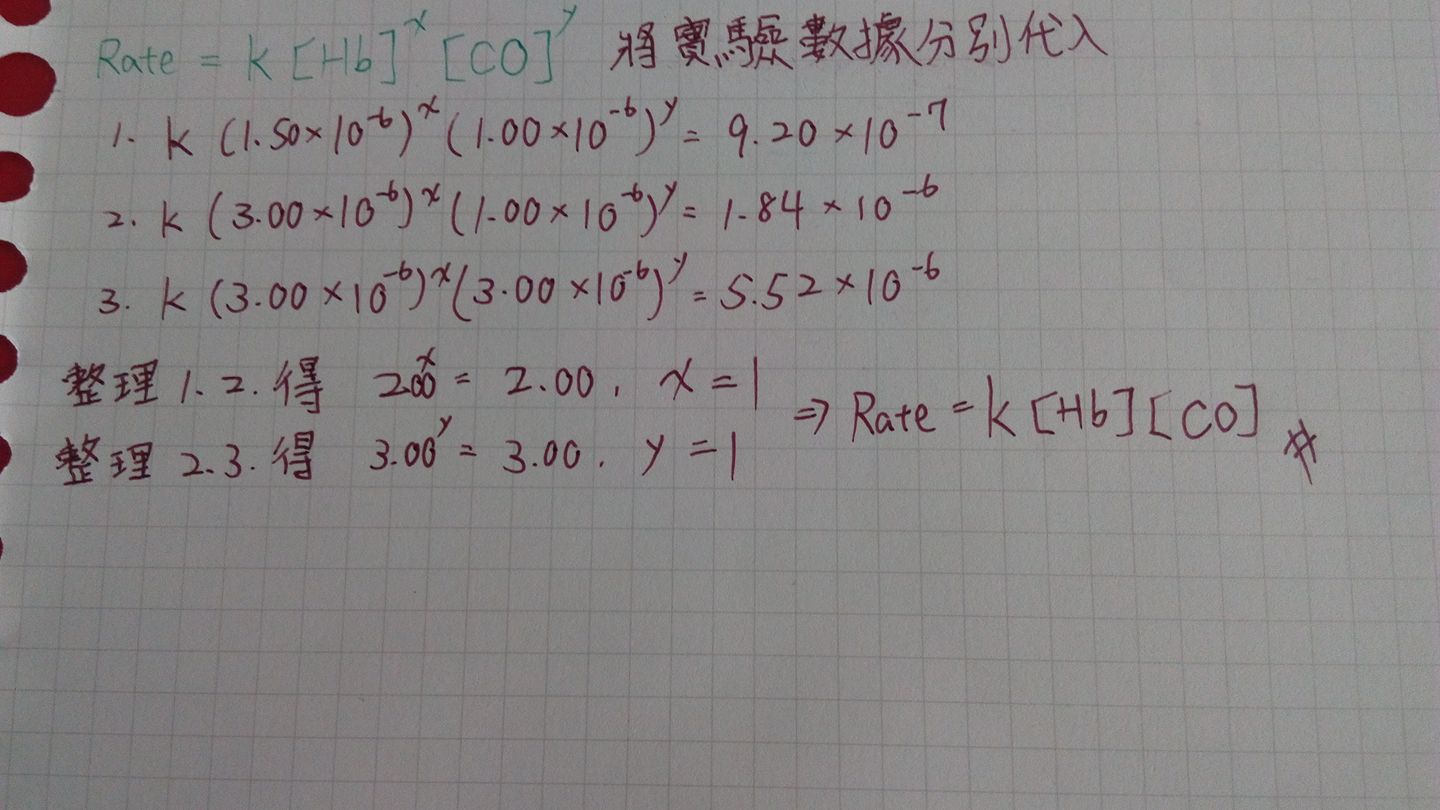 Rate = k [Hb]^x [CO]^y 將實驗數據分別代入
1. k (1.50×10^-6)^x (1.00×10^-6)^y = 9.20 ×10^-7
2. k (3.00×10^-6)^x (1.00×10^-6)^y = 1.84 ×10^-6
3. k (3.00 ×10^-6)^x (3.00 ×10^-6)^y = 5.52 ×10^-6
整理 1. 2. 得 2.00^x = 2.00 , x = 1
整理 2.3. 得 3.00^y = 3.00 . y = 1
⇒ Rate = k [Hb] [CO] #